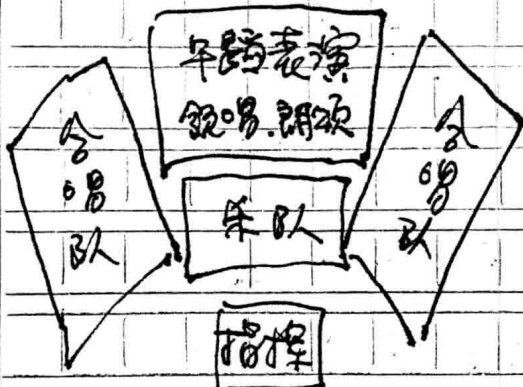 午蹈表演
領唱.朗颂
合唱队
乐队
合唱队
指挥